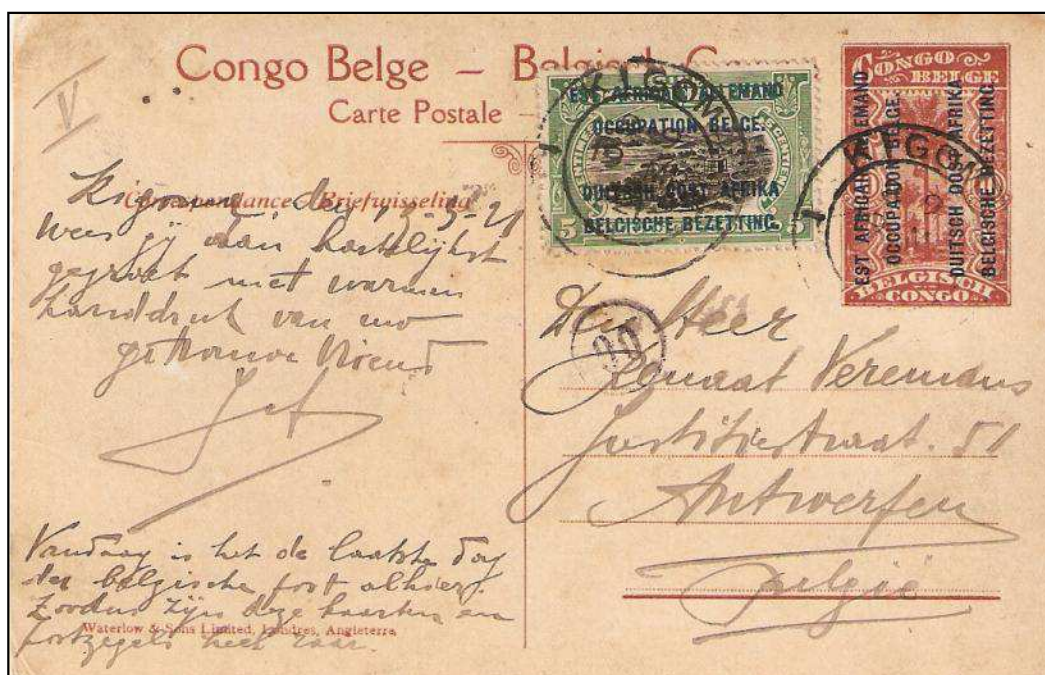 V
Congo Belge – Belgisch Congo
Carte Postale
Correspondance - Briefwisseling
Kigoma, den 12-3-21
Wees gij dan hartelijkst
gegroet met warmen
handdruk van uw
getrouwe Vriend
Jef
Vandaag is het de laatste dag
der belgische post alhier.
Zoodus zijn deze kaarten en
postzegels heel raar.
Waterlow & Sons Limited, Londres, Angleterre.
EST AFRICAIN ALLEMAND
OCCUPATION BELGE.
DUITSCH OOST AFRIKA
BELGISCHE BEZETTING.
5 5
KIGOMA
CONGO
BELGE
EST AFRICAIN ALLEMAND
OCCUPATION BELGE.
DUITSCH OOST AFRIKA
BELGISCHE BEZETTING.
BELGISCH
CONGO
KIGOMA
Den Heer
Renaat Veremans
Justitiestraat. 51
Antwerpen
België